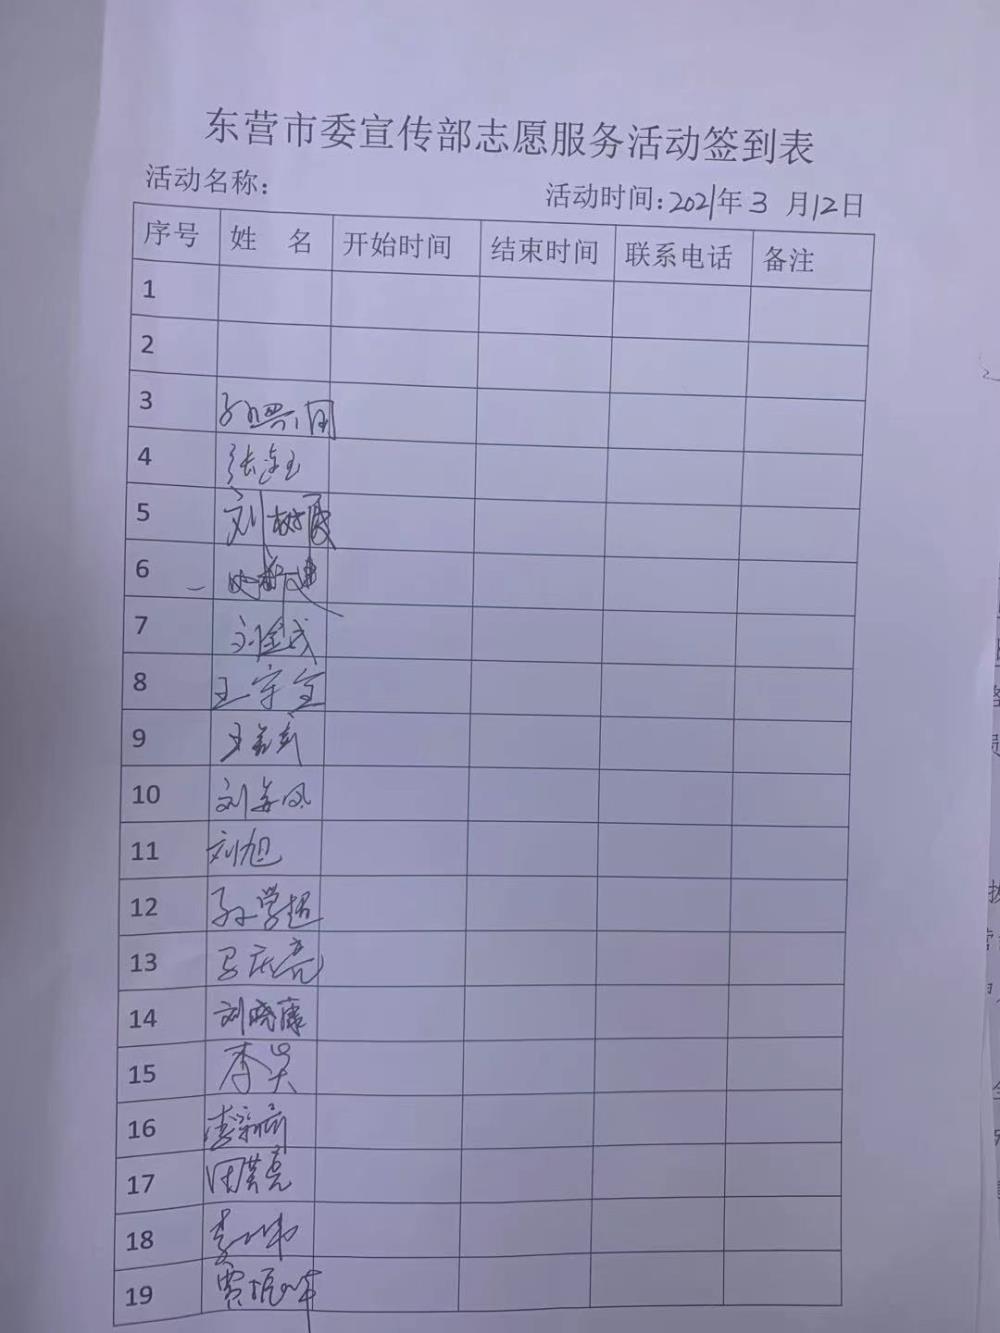 东营市委宣传部志愿服务活动签到表
活动名称: 活动时间:2021年3月12日
序号 姓 名 开始时间 结束时间 联系电话 备注
1
2
3
4 张
5 刘树
6
7 刘金成
8 王宇宝
9 王
10 刘美凤
11 刘旭
12 孙学超
13 马庆亮
14 刘晓康
15 李昊
16 李新
17 田其亮
18 李
19 贾